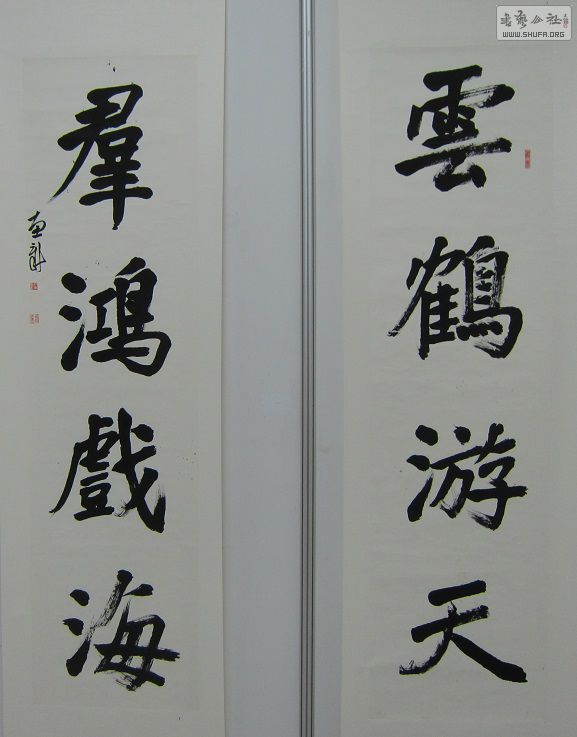 雲鶴游天
羣鴻戲海
书艺公社
WWW.SHUFA.ORG